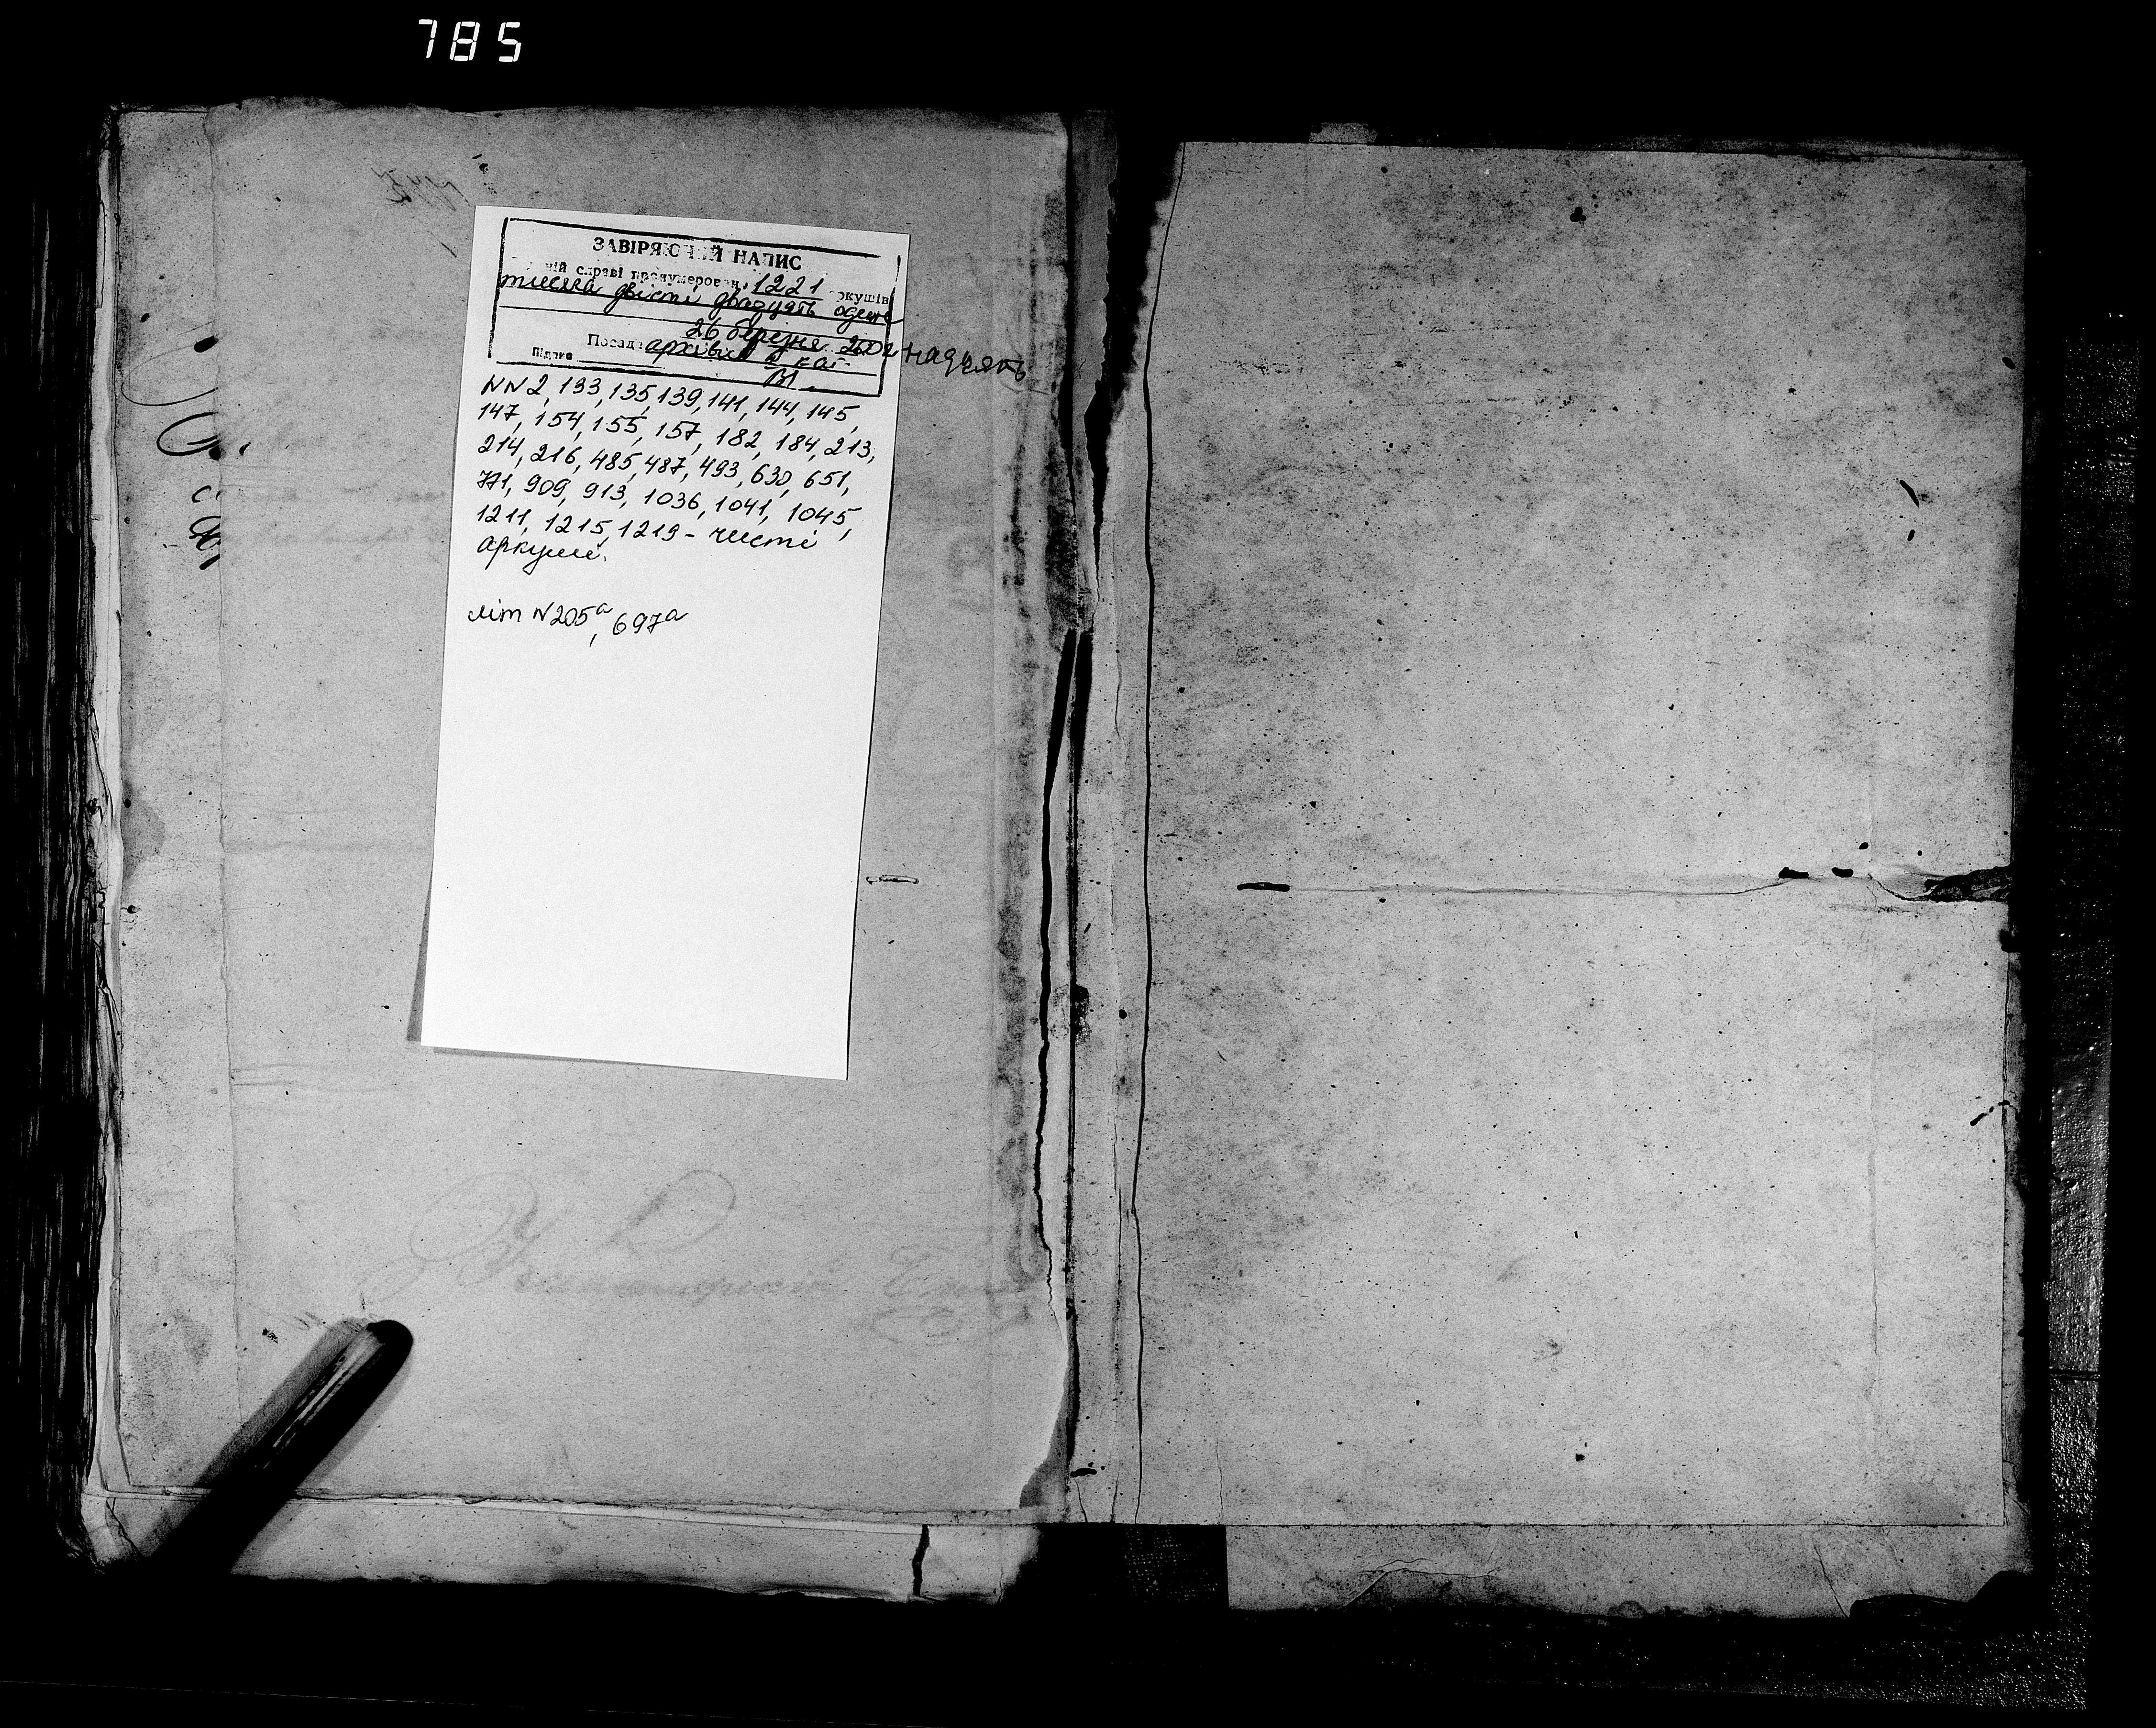 785
ЗАВІРЯЮЧИЙ НАПИС
ній справі пронумеровано 1221 аркушів
тисяча двісті двадцять один
26 березня 2002
Посада архівіст кат.
Підпис
NN 2, 133, 135, 139, 141, 144, 145,
147, 154, 155, 157, 182, 184, 213,
214, 216, 485, 487, 493, 630, 651,
771, 909, 913, 1036, 1041, 1045,
1211, 1215, 1219 - чисті
аркуші.
літ N 205а, 697а